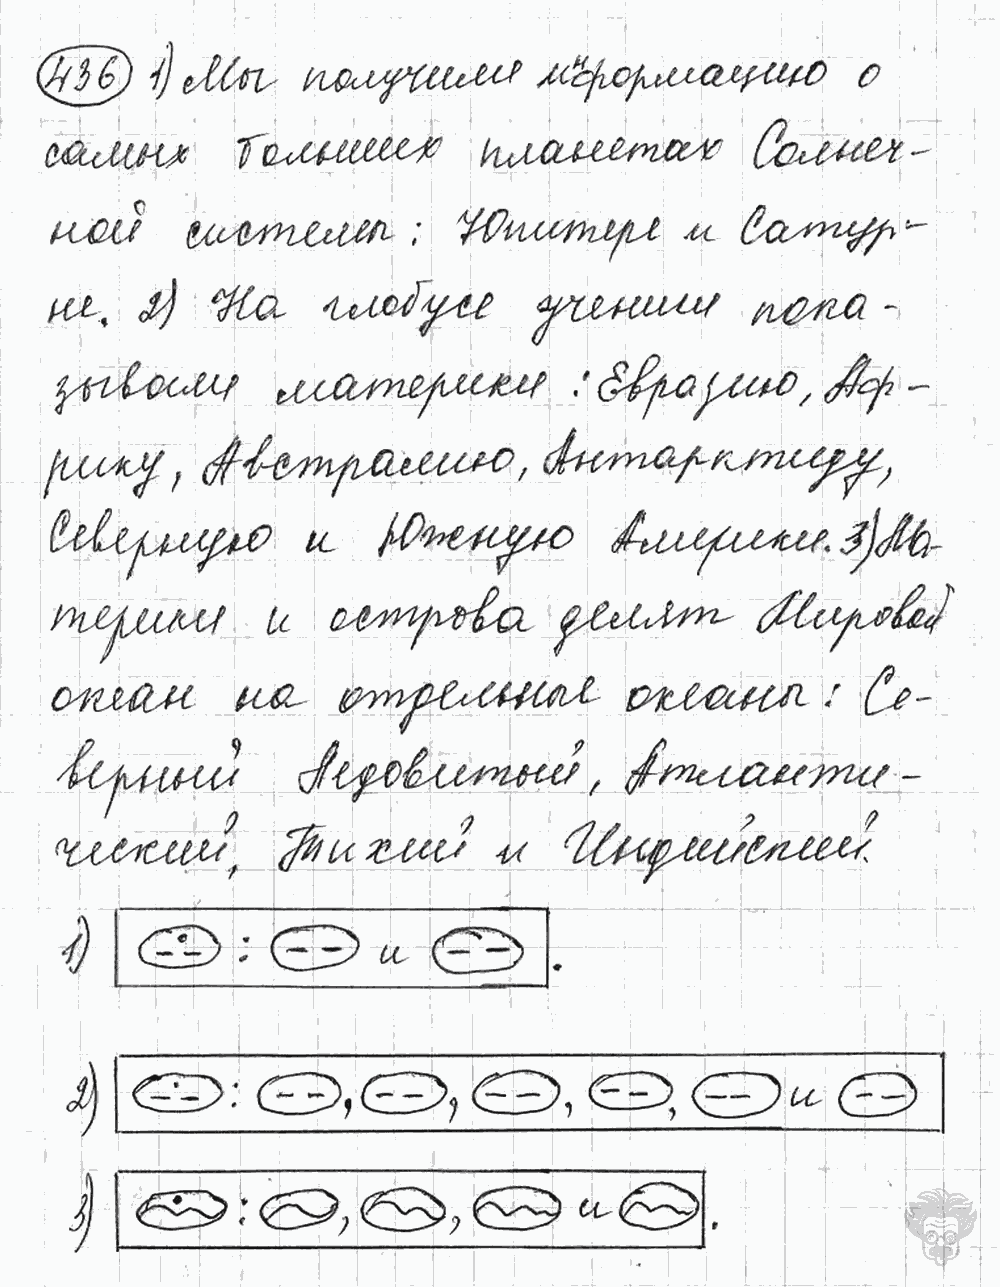 436 1) Мы получили информацию о
самых больших планетах Солнеч-
ной системы: Юпитере и Сатур-
не. 2) На глобусе ученики пока-
зывали материки: Евразию, Аф-
рику, Австралию, Антарктиду,
Северную и Южную Америки. 3) Ма-
терики и острова делят Мировой
океан на отдельные океаны: Се-
верный Ледовитый, Атланти-
ческий, Тихий и Индийский.
1) : и .
2) : , , , , и
3) : , , и .